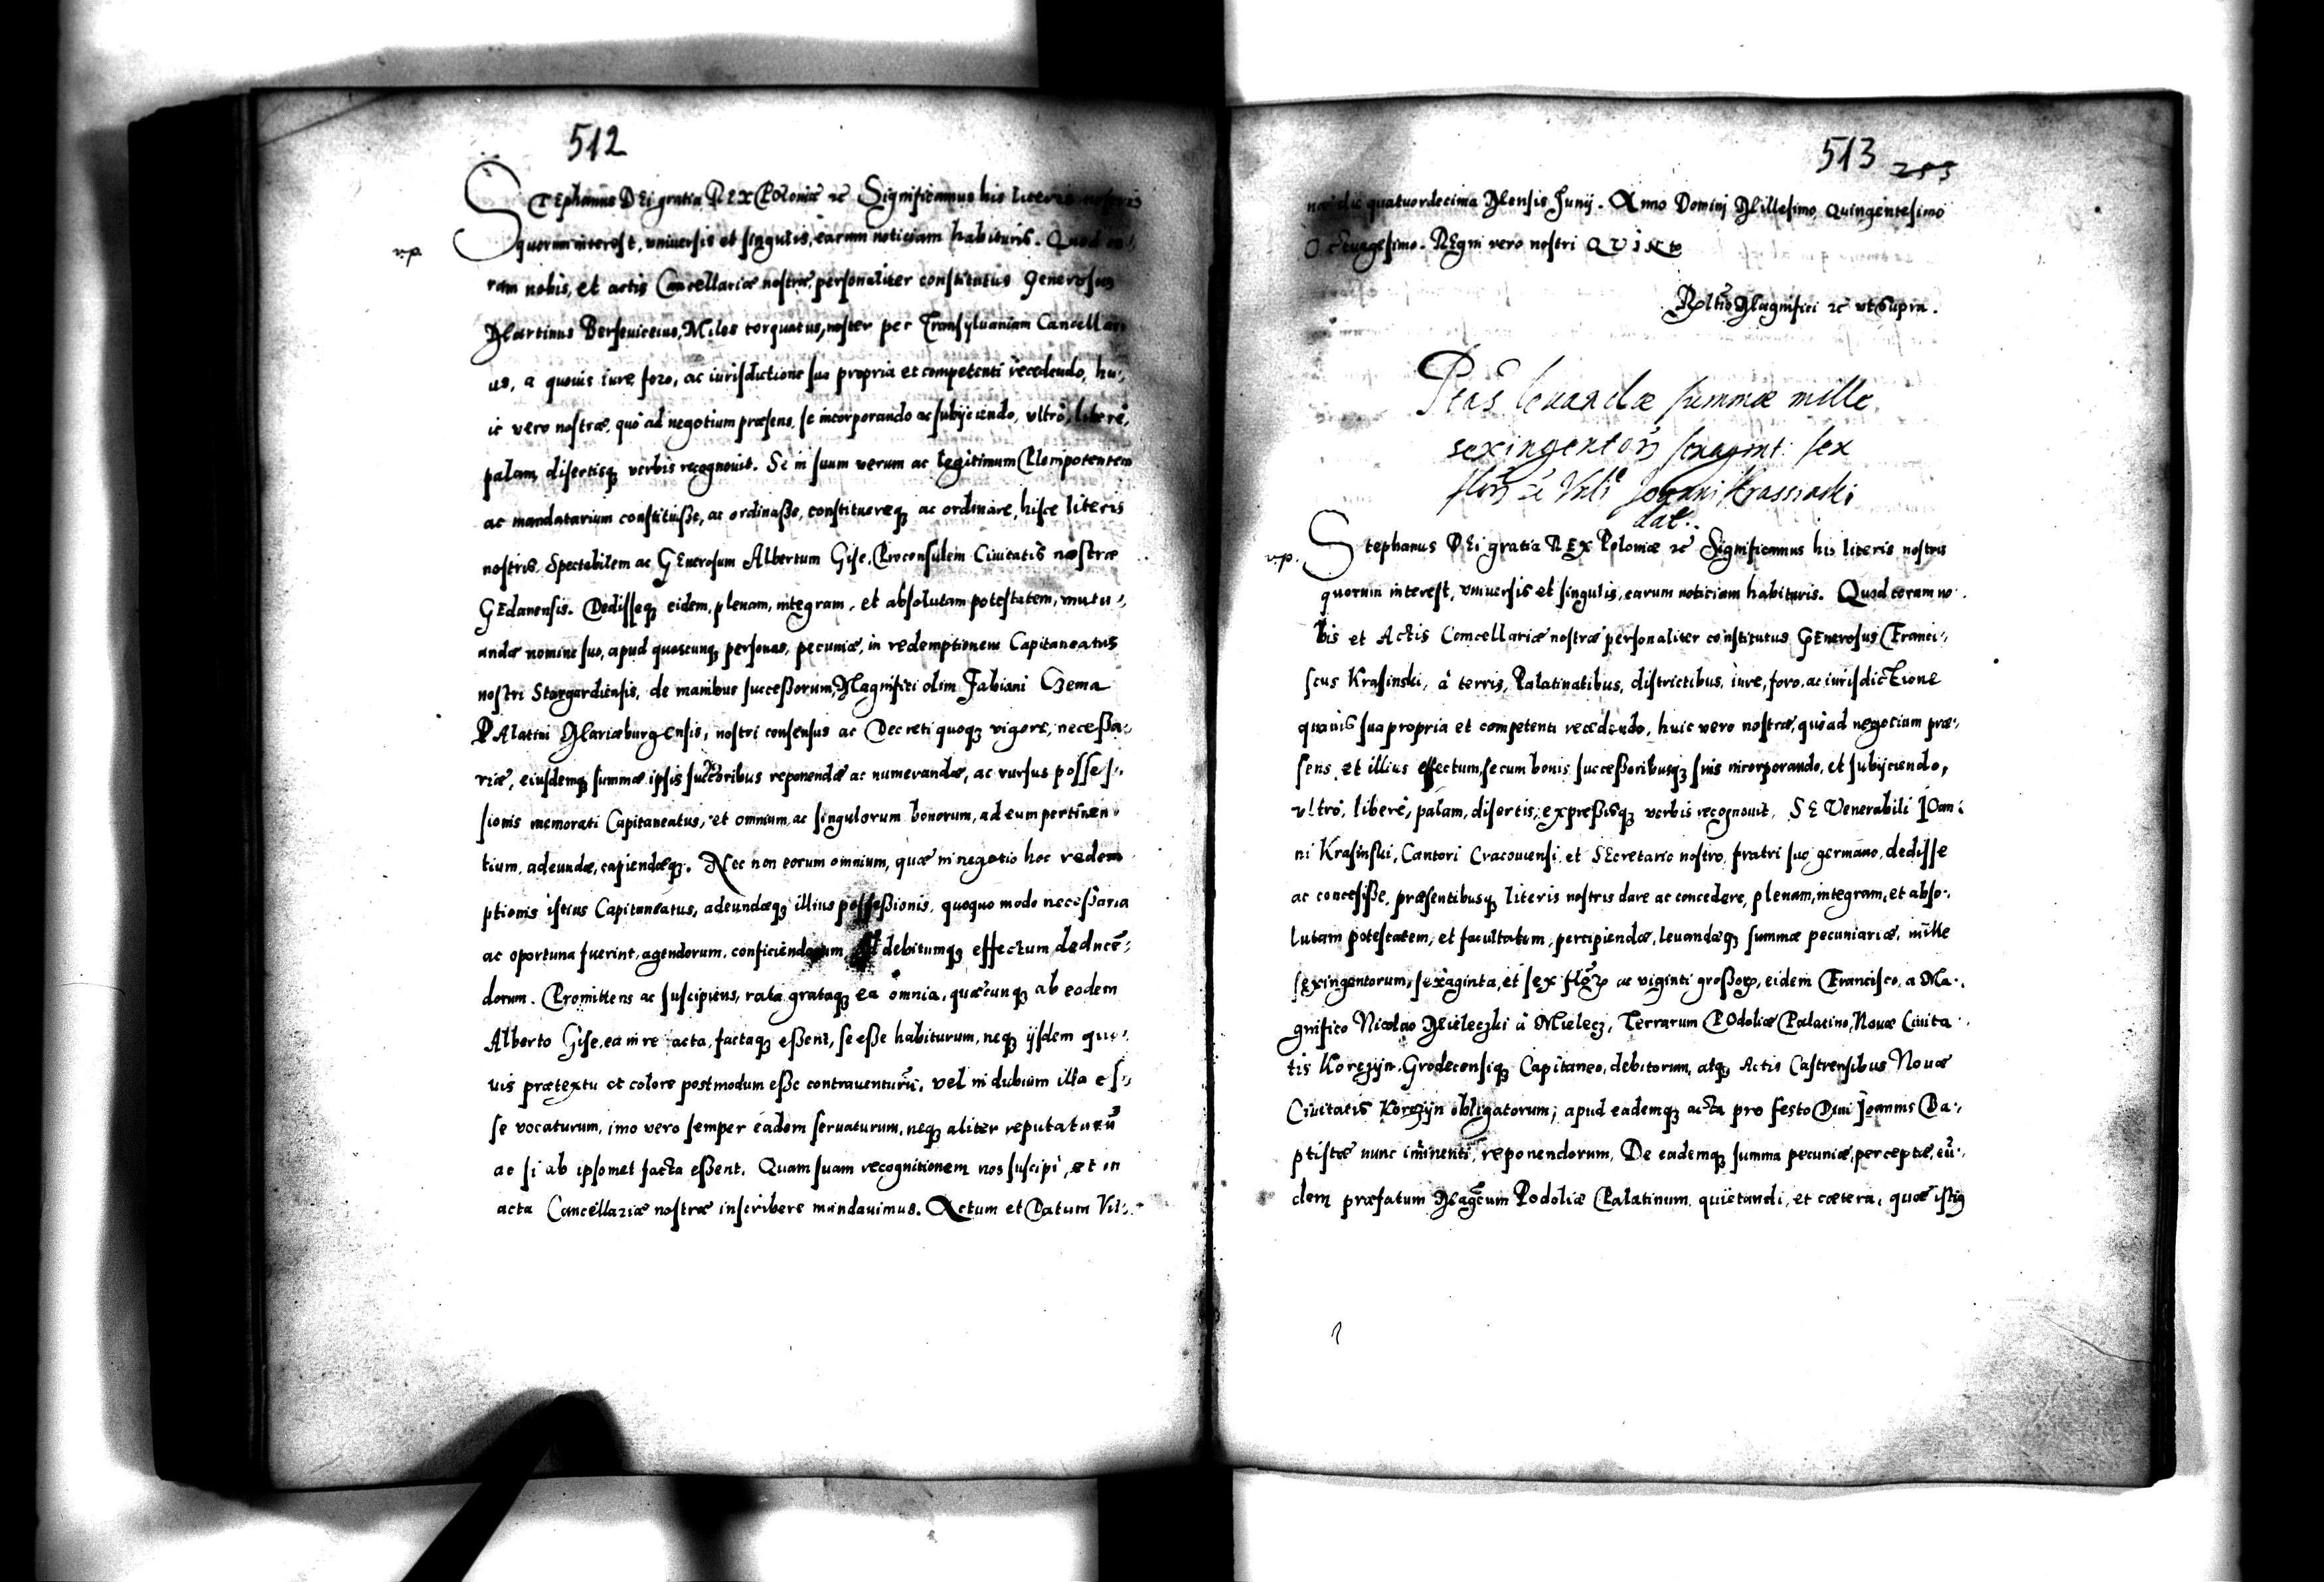 512
STEphanus DEi gratia REX Poloniæ etc Significamus his literis nostris
v.p.
quorum interest, vniuersis et singulis, earum noticiam habituris. Quod co:,
ram nobis, et actis Cancellariæ nostræ, personaliter constitutus Generosus
Martinus Berseuiceius, Miles torquatus, noster per Transyluaniam Cancellari
us, a quouis iure, foro, ac iurisdictione sua propria et competenti recedendo, hu:,
ic vero nostræ, quò ad negotium præsens, se incorporando ac subijciendo, vltrò, liberè,
palam, disertisq; verbis recognouit. Se in suum verum ac legitimum Plenipotentem
ac mandatarium constituisse, ac ordinasse, constituereq; ac ordinare, hisce literis
nostris. Spectabilem ac GEnerosum Albertum Gise, Proconsulem Ciuitatis nostræ
GEdanensis. Dedisseq; eidem, plenam, integram, et absolutam potestatem, mutu:,
andæ nomine suo, apud quascunq; personas, pecuniæ, in redemptionem Capitaneatus
nostri Stargardiensis, de manibus successorum, Magnifici olim Fabiani Czema
PAlatini Mariæburgensis, nostri consensus ac Decreti quoq; vigore, necessa:,
riæ, eiusdemq; summæ ipsis succoribus reponendæ ac numerandæ, ac rursus posses:,
sionis memorati Capitaneatus, et omnium, ac singulorum bonorum, ad eum pertinen:,
tium, adeundæ, capiendæq;. Nec non eorum omnium, quæ in negotio hoc redem
ptionis istius Capitaneatus, adeundæq; illius possessionis, quoquo modo necessaria
ac oportuna fuerint, agendorum, conficiendorum, debitumq; effectum deducē:,
dorum. Promittens ac suscipiens, rata grataq; ea omnia, quæcunq; ab eodem
Alberto Gise, ea in re acta, factaq; essent, se esse habiturum, neq; ijsdem quo:,
uis prætextu et colore postmodum esse contrauenturū, vel in dubium illa es:,
se vocaturum, imo vero semper eadem seruaturum, neq; aliter reputaturū
ac si ab ipsomet facta essent. Quam suam recognitionem nos suscipi, et in
acta Cancellariæ nostræ inscribere mandauimus. Actum et Datum Vil:,
513 255
næ die quatuordecima Mensis Junij. Anno Domini Millesimo, Quingentesimo
Octuagesimo. REgni vero nostri QVinto
Reltio Magnifici etc vt supra.
Ptas leuandæ summæ mille
sexingentor sexagint: sex
flor Vnli Joanni Krassinski
dat.
v.p.
Stephanus DEi gratia REX Poloniæ etc Significamus his literis nostris
quorum interest, vniuersis et singulis, earum noticiam habituris. Quod coram no:
bis et Actis Camcellariæ nostræ personaliter constitutus GEnerosus Franci:,
scus Krasinski, à terris, Palatinatibus, districtibus, iure, foro, ac iurisdictione
quauis sua propria et competenti recedendo, huic vero nostræ, quò ad negotium præ:,
sens et illius effectum, se cum bonis successoribusq; suis incorporando, et subijciendo,
vltrò, liberè, palam, disertis, expressisq; verbis recognouit, SE Venerabili Joan:
ni Krasinski, Cantori Cracouiensi et SEcretario nostro, fratri suo germano, dedisse
ac concesisse, præsentibusq; literis nostris dare ac concedere, plenam, integram, et abso:,
lutam potestatem, et facultatem, percipiendæ, leuandæq; summæ pecuniariæ, mille
sexingentorum, sexaginta, et sex flor ac viginti grossor, eidem Francisco, a Ma:,
gnifico Nicolao Mieleczki à Mielecz, Terrarum POdoliæ Palatino, Nouæ Ciuita:,
tis Korczyn, Grodecensiq; Capitaneo, debitorum, atq; Actis Castrensibus Nouæ
Ciuitatis Korczyn obligatorum; apud eademq; acta pro festo Diui Joannis Ba:,
ptistæ nunc iminenti, reponendorum, De eademq; summa pecuniæ, perceptæ, eū:,
dem præfatum Magcum Podoliæ Palatinum, quietandi, et cætera, quæ istiq